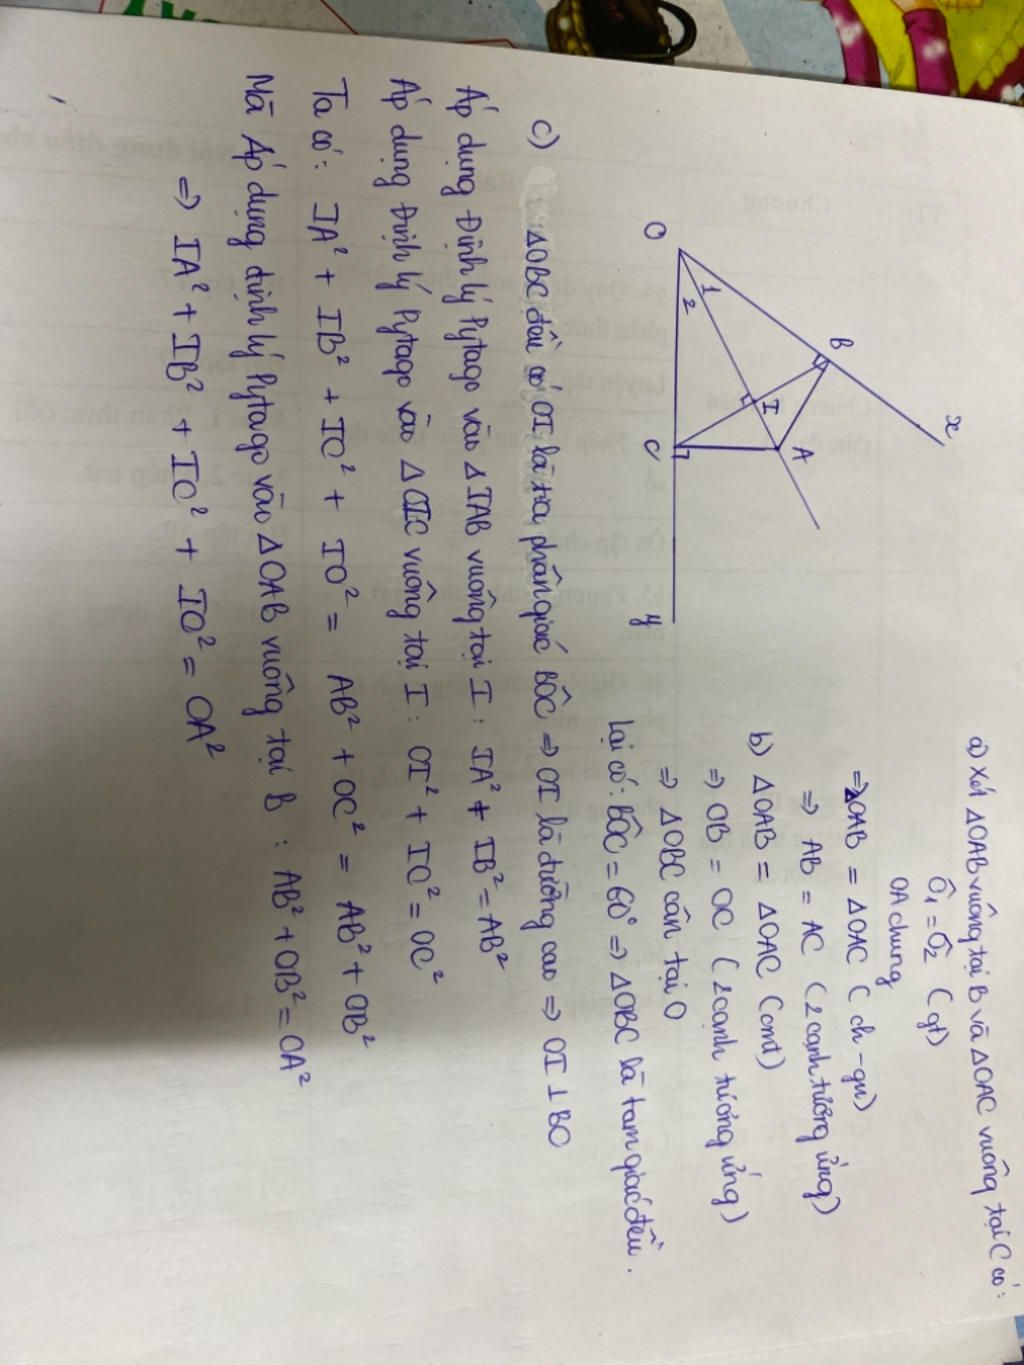 a) Xét ΔOAB vuông tại B và ΔOAC vuông tại C có:
Ô₁ = Ô₂ (gt)
OA chung
⇒ ΔOAB = ΔOAC (ch - gn)
⇒ AB = AC (2 cạnh tương ứng)
b) ΔOAB = ΔOAC (cmt)
⇒ OB = OC (2 cạnh tương ứng)
⇒ ΔOBC cân tại O
Lại có: BÔC = 60° ⇒ ΔOBC là tam giác đều.
O
1
2
B
x
I
A
C
y
c) ΔOBC đều có OI là tia phân giác BÔC ⇒ OI là đường cao ⇒ OI ⊥ BC
Áp dụng Định lý Pytago vào ΔIAB vuông tại I: IA² + IB² = AB²
Áp dụng Định lý Pytago vào ΔOIC vuông tại I: OI² + IC² = OC²
Ta có: IA² + IB² + IC² + IO² = AB² + OC² = AB² + OB²
Mà Áp dụng định lý Pytago vào ΔOAB vuông tại B: AB² + OB² = OA²
⇒ IA² + IB² + IC² + IO² = OA²